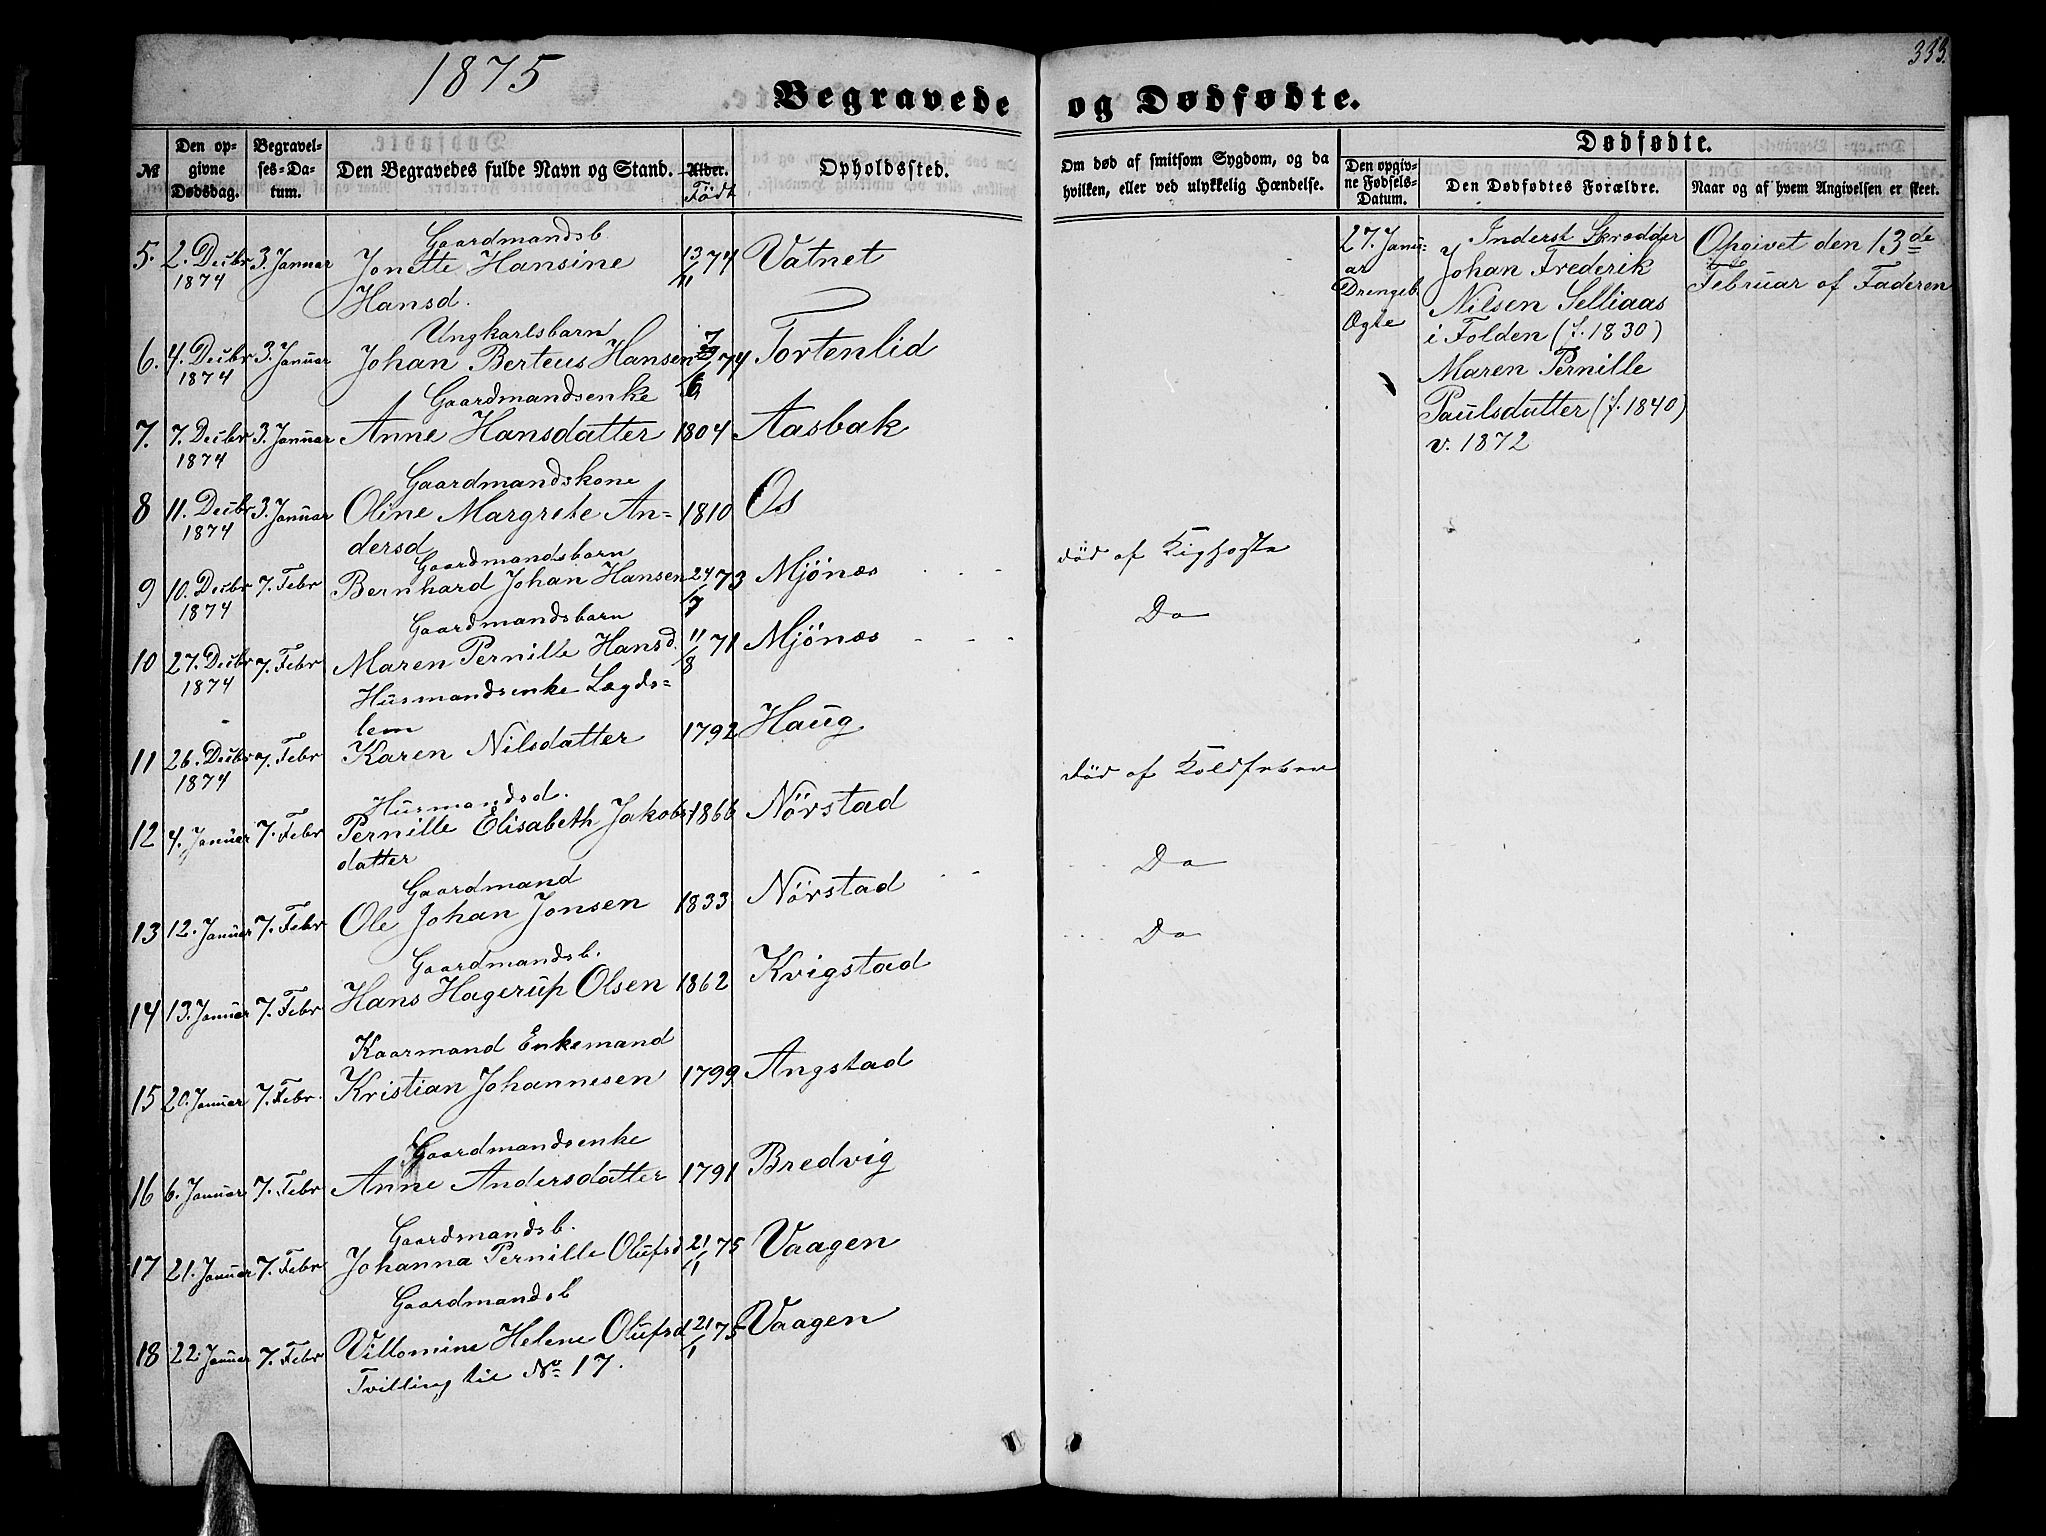 1875
333.
Begravede og Dødfødte.
№
Den opgivne Dødsdag.
Begravelses-Datum.
Den Begravedes fulde Navn og Stand.
Alder.
Födt
Opholdssted.
Om død af smitsom Sygdom, og da hvilken, eller ved ulykkelig Hændelse.
Dødfødte.
Den opgivne Fødsels-Datum.
Den Dødfødtes Forældre.
Naar og af hvem Angivelsen er skeet.
Gaardmandsb.
5. 2. Decbr 3. Januar Jonette Hansine 13/11 74 Vatnet
1874 Hansd.
Ungkarlsbarn
6. 4. Decbr 3. Januar Johan Berteus Hansen 74 Tortenlid
1874
Gaardmandsenke
7. 7. Decbr 3. Januar Anne Hansdatter 1804 Aasbak
1874
Gaardmandskone
8 11. Decbr 3. Januar Oline Margrete An- 1810 Os
1874 dersd
Gaardmandsbarn
9 10. Decbr 7. Febr Bernhard Johan Hansen 24/7 73 Mjönæs død af Kighoste
1874
Gaardmandsbarn
10 27. Decbr 7. Febr Maren Pernille Hansd. 11/8 71 Mjönæs Do
1874
Husmandsenke Lægds-
lem
11 26. Decbr 7. Febr Karen Nilsdatter 1792 Haug
1874
Husmandsd.
12 4. Januar 7. Febr Pernille Elisabeth Jakobs- 1866 Nörstad død af Koldfeber
datter
Gaardmand
13 12. Januar 7. Febr Ole Johan Jonsen 1833 Nörstad Do
Gaardmandsb.
14 13. Januar 7. Febr Hans Hagerup Olsen 1862 Kvigstad Do
Kaarmand Enkemand
15 20. Januar 7. Febr. Kristian Johannesen 1799 Angstad
Gaardmandsenke
16 6. Januar 7. Febr Anne Andersdatter 1791 Bredvig
Gaardmandsb.
17 21. Januar 7. Febr Johanna Pernille Olufsd 21/1 75 Vaagen
Gaardmandsb
18 22. Januar 7. Febr Villomine Helene Olufsd 21/1 75 Vaagen
Tvilling til No 17.
27. Janu-
ar
Drengeb.
Ægte
Inderst Skrædder
Johan Frederik
Nilsen Selliaas
i Folden (f. 1830)
Maren Pernille
Paulsdatter (f. 1840)
v. 1872
Opgivet den 13de
Februar af Faderen